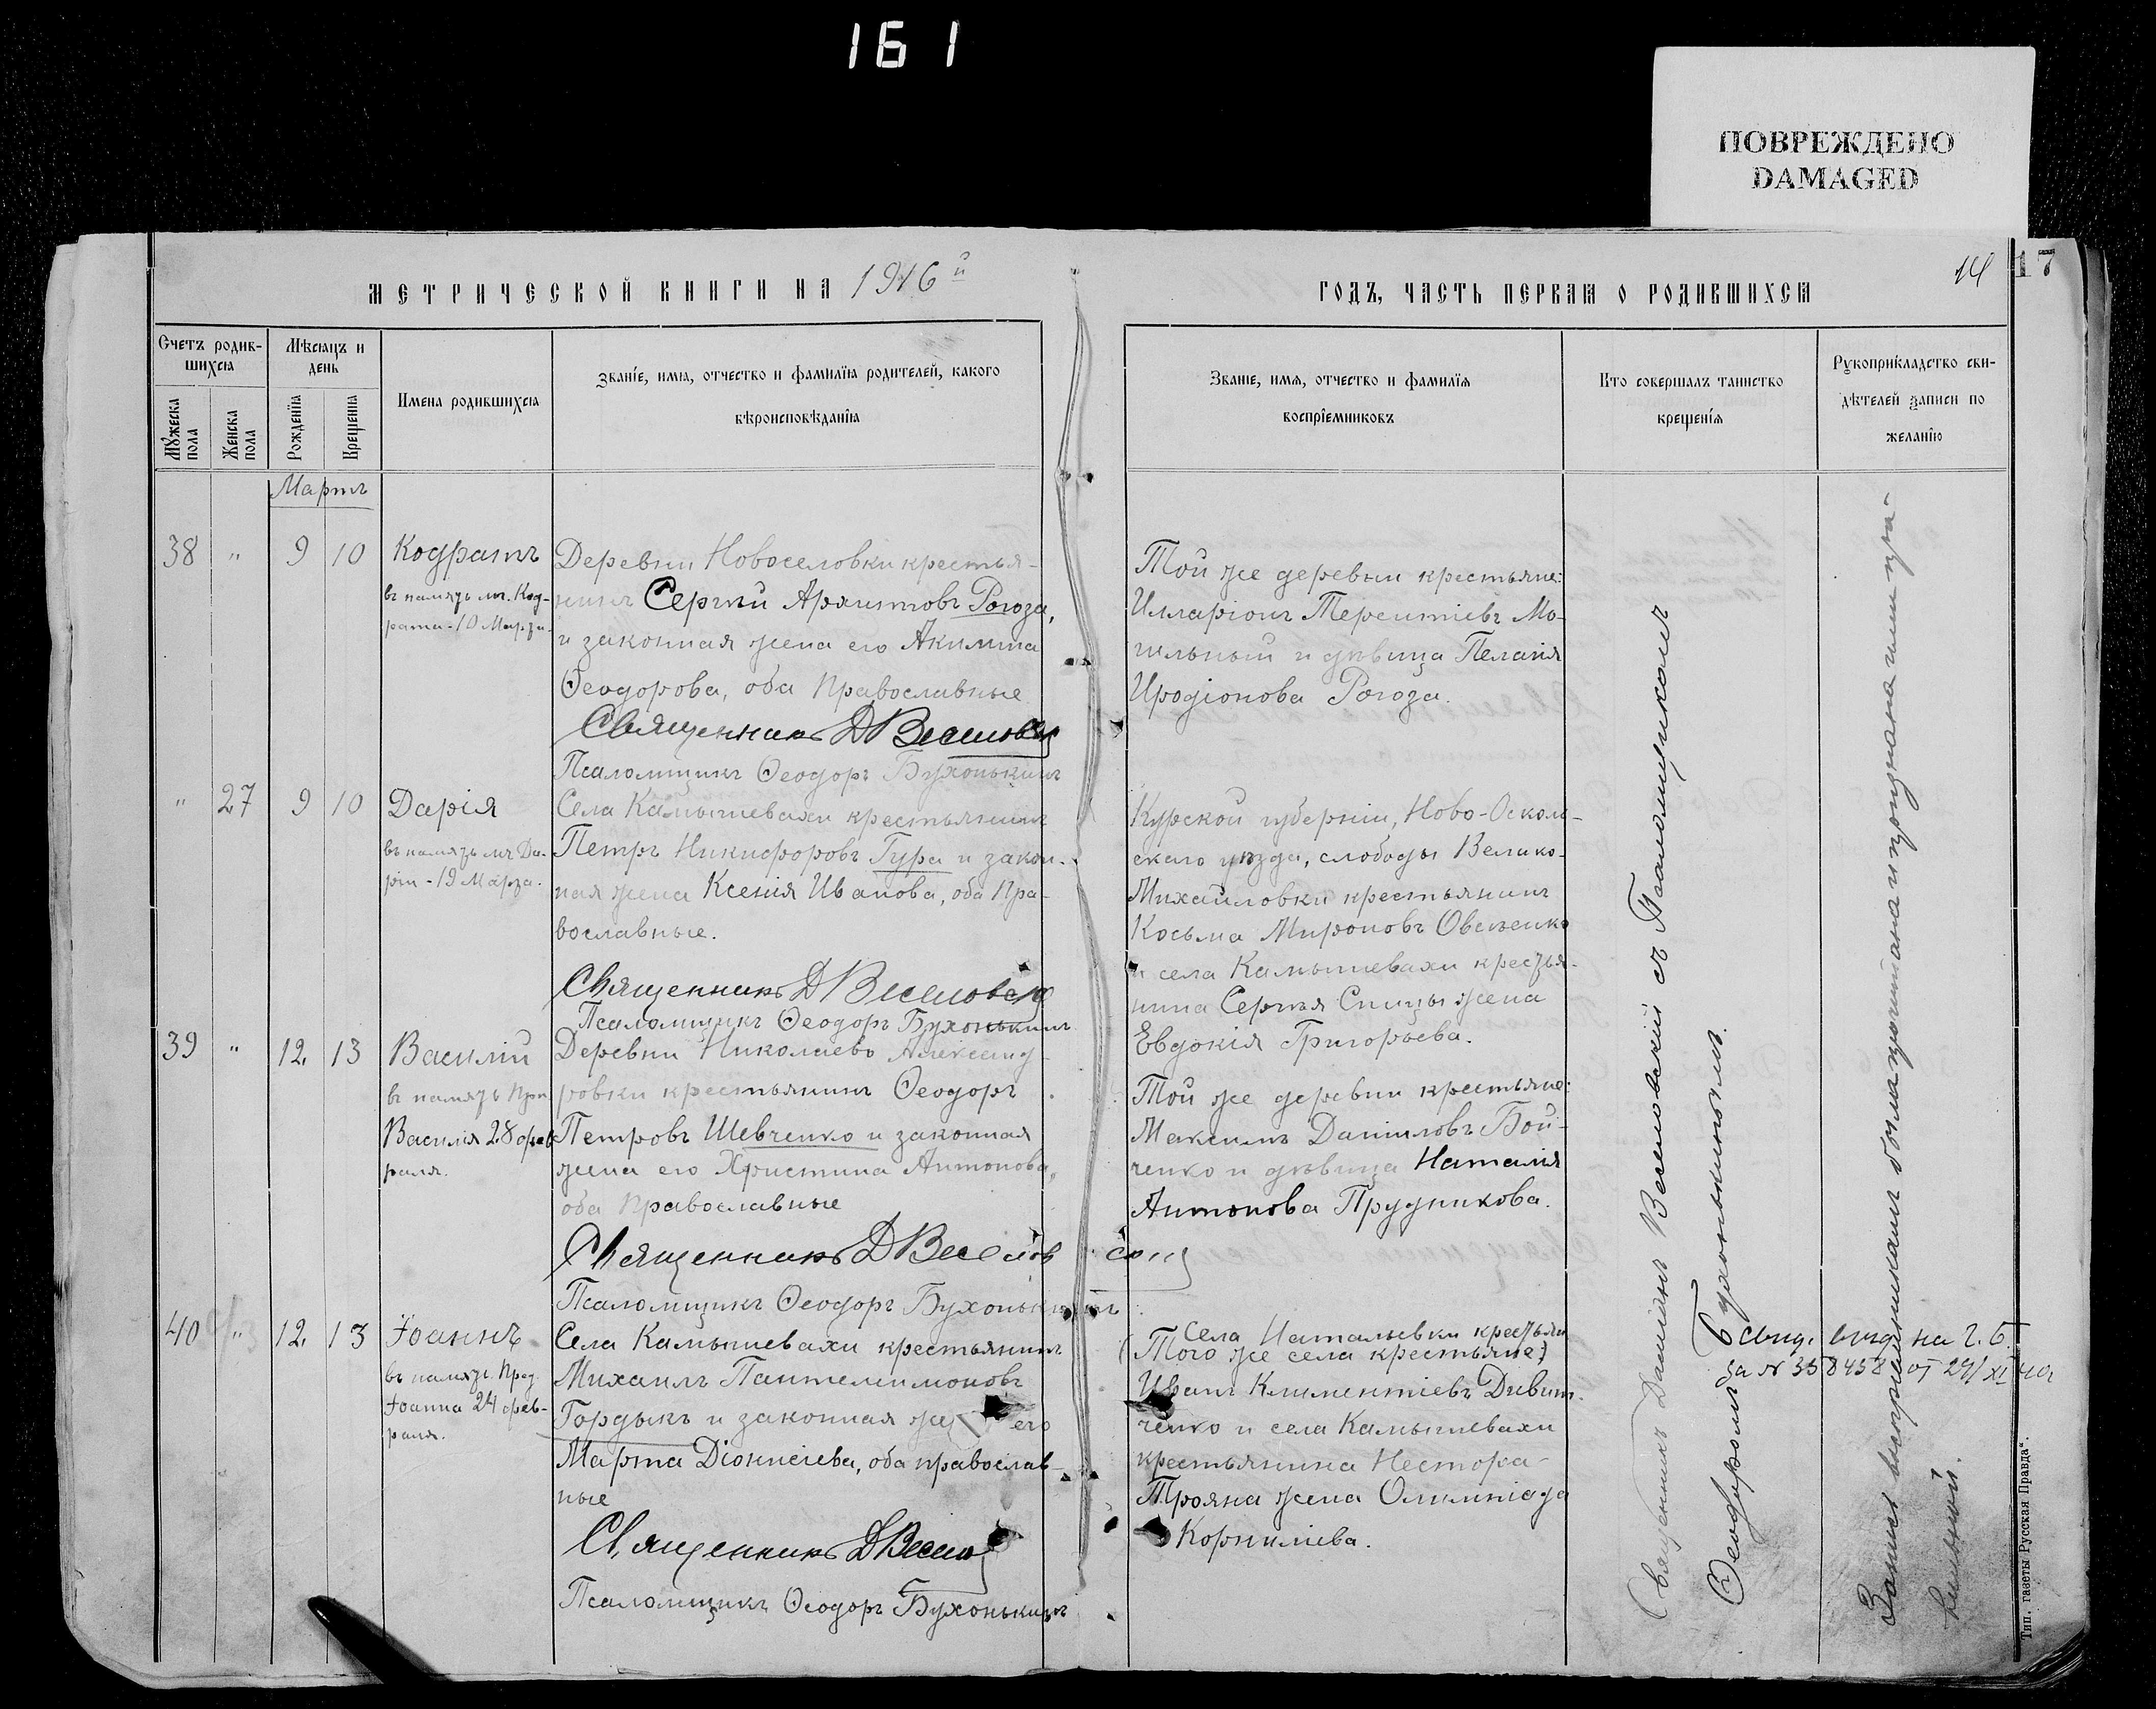 161
ПОВРЕЖДЕНО
DAMAGED
МЕТРИЧЕСКОЙ КНИГИ НА 1916 й
ГОДЪ, ЧАСТЬ ПЕРВАЯ О РОДИВШИХСЯ
14
17
Счетъ родив-
шихся
Мѣсяцъ и
день
Мужеска
пола
Женска
пола
Рожденїя
Крещенїя
Имена родившихся
Званїе, имя, отчество и фамилїя родителей, какого
вѣроисповѣданїя
Званїе, имя, отчество и фамилїя
воспрїемниковъ
Кто совершалъ таинство
крещенїя
Рукоприкладство сви-
дѣтелей записи по
желанїю
Мартъ
38 " 9 10 Кодратъ
въ память мч. Код-
рата - 10 Марта
Деревни Новоселовки крестья-
нинъ Сергѣй Архиповъ Рогоза,
и законная жена его Акилина
Ѳеодорова, оба Православные
Священникъ Д Веселовскій
Псаломщикъ Ѳеодоръ Бухонькинъ
Той же деревни крестьяне:
Илларіонъ Терентіевъ Мо-
гильный и дѣвица Пелагія
Иродіонова Рогоза.
" 27 9 10 Дарія
въ память мч. Да-
ріи - 19 Марта.
Села Камышевахи крестьянинъ
Петръ Никифоровъ Гура и закон-
ная жена Ксенія Иванова, оба Пра-
вославные.
Священникъ Д Веселовскій
Псаломщикъ Ѳеодоръ Бухонькинъ
Курской губерніи, Ново-Осколь-
скаго уѣзда, слободы Велико-
Михайловки крестьянинъ
Косьма Мироновъ Овсѣенко
и села Камышевахи крестья-
нина Сергѣя Спицы жена
Евдокія Григорьева.
39 " 12. 13 Василій
въ память Прп
Василія 28 фев
раля.
Деревни Николаево Александ-
ровки крестьянинъ Ѳеодоръ
Петровъ Шевченко и законная
жена его Христина Антонова,
оба Православные
Священникъ Д Веселовскій
Псаломщикъ Ѳеодоръ Бухонькинъ
Той же деревни крестьяне:
Максимъ Даніиловъ Бой-
ченко и дѣвица Наталія
Антонова Прудникова.
40 " 12. 13 Іоаннъ
въ память. Пред.
Іоанна 24 фев-
раля.
Села Камышевахи крестьянинъ
Михаилъ Пантелеимоновъ
Гордыкъ и законная же его
Марта Діонисіева, оба православ-
ные
Священникъ Д Весел
Псаломщикъ Ѳеодоръ Бухонькинъ
Села Натальевки крестьян
(Того же села крестьяне:)
Иванъ Климентіевъ
ченко и села Камышевахи
крестьянина Нестора
Трояна жена Олимпіада
Корниліева.
Священникъ Даміанъ Веселовскій съ Псаломщикомъ
Ѳеодоромъ Бухонькинымъ.
свид. выд. на г. б.
за № 358458 от 27/XI 40г
Запись воспріемникамъ была прочитана и признана ими пра-
вильной.
Тип. газеты „Русская Правда“.